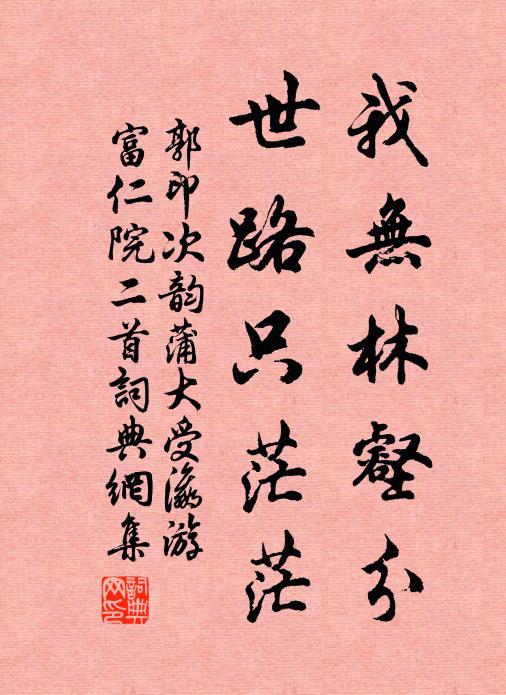 我無林壑分
世路只茫茫
郭印次韵蒲大受瀛游
富仁院二首詞典網集
詞典网印